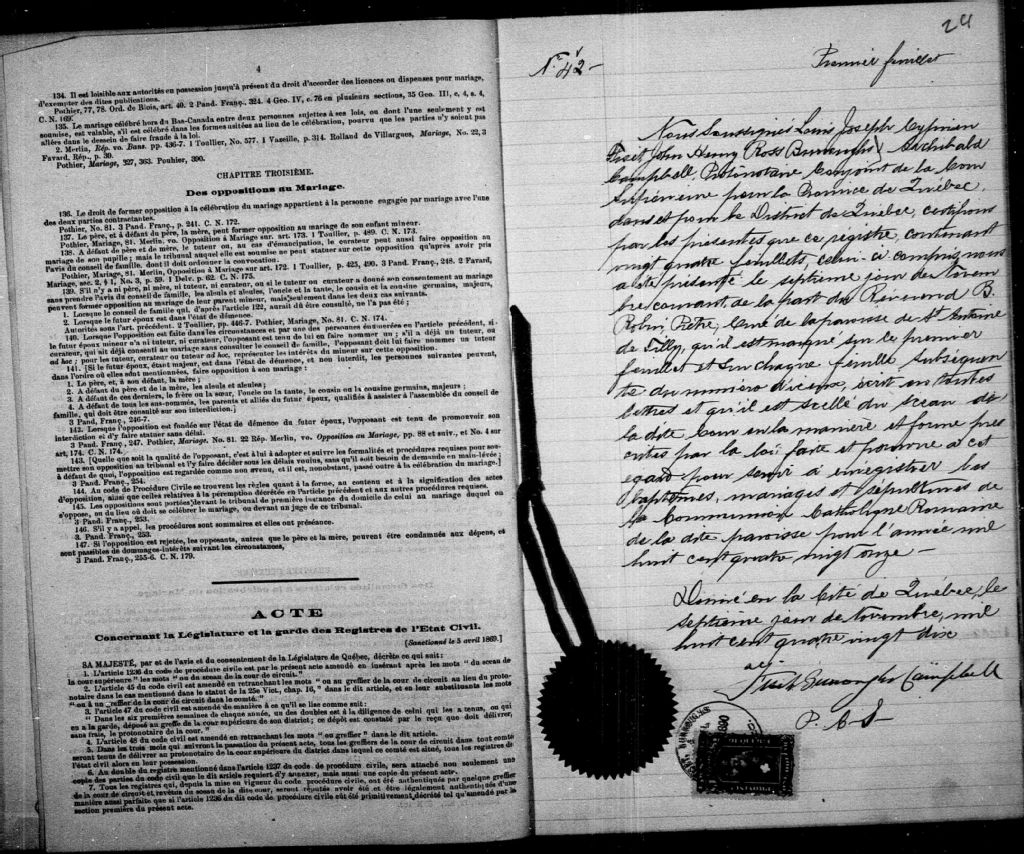 4
134. Il est loisible aux autorités en possession jusqu'à présent du droit d'accorder des licences ou dispenses pour mariage,
d'exempter des dites publications.
Pothier, 77, 78. Ord. de Blois, art. 40. 2 Pand. Franç., 324. 4 Geo. IV, c. 76 en plusieurs sections, 35 Geo. III, c, 4, s. 4,
C. N. 169.
135. Le mariage célébré hors du Bas-Canada entre deux personnes sujettes à ses lois, ou dont l'une seulement y est
soumise, est valable, s'il est célébré dans les formes usitées au lieu de la célébration, pourvu que les parties n'y soient pas
allées dans le dessein de faire fraude à la loi.
2. Merlin, Rép. vo. Bans. pp. 436-7. 1 Toullier, No. 577. 1 Vazeille, p. 314. Rolland de Villargues, Mariage, No. 22, 3
Favard. Rép., p. 30.
Pothier, Mariage, 327, 363. Pouhier, 390.
CHAPITRE TROISIÈME.
Des oppositions au Mariage.
136. Le droit de former opposition à la célébration du mariage appartient à la personne engagée par mariage avec l'une
des deux parties contractantes.
Pothier, No. 81. 3 Pand. Franç., p. 241. C. N. 172.
137. Le père, et à défaut du père, la mère, peut former opposition au mariage de son enfant mineur.
Pothier, Mariage, 81. Merlin. vo. Opposition à Mariage sur art. 173. 1 Toullier, s. 489. C. N. 173.
138. A défaut de père et de mère, le tuteur ou, au cas d'émancipation, le curateur peut aussi faire opposition au
mariage de son pupille; mais le tribunal auquel elle est soumise ne peut statuer sur cette opposition qu'après avoir pris
l'avis du conseil de famille, dont il doit ordonner la convocation.
Pothier, Mariage, 81. Merlin, Opposition à Mariage sur art. 172. 1 Toullier, p. 425, 490. 3 Pand. Franç., 248. 2 Favard,
Mariage, sec. 2, § 1, No. 3, p. 59. 1 Delv. p. 62. C. N. 175.
139. S'il n'y a ni père, ni mère, ni tuteur, ni curateur, ou si le tuteur ou curateur a donné son consentement au mariage
sans prendre l'avis du conseil de famille, les aïeuls et aïeules, l'oncle et la tante, le cousin et la cousine germains, majeurs,
peuvent former opposition au mariage de leur parent mineur, mais seulement dans les deux cas suivants.
1. Lorsque le conseil de famille qui, d'après l'article 122, aurait dû être consulté, ne l'a pas été;
2. Lorsque le futur époux est dans l'état de démence.
Autorités sous l'art. précédent. 2 Toullier, pp. 446-7. Pothier, Mariage, No. 81. C. N. 174.
140. Lorsque l'opposition est faite dans les circonstances et par une des personnes énumérées en l'article précédent, si
le futur époux mineur n'a ni tuteur, ni curateur, l'opposant est tenu de lui en faire nommer un; s'il a déjà un tuteur, ou
curateur, qui ait déjà consenti au mariage sans consulter le conseil de famille, l'opposant doit lui faire nommer un tuteur
ad hoc; pour les tuteur, curateur ou tuteur ad hoc, représenter les intérêts du mineur sur cette opposition.
141. [Si le futur époux, étant majeur, est dans l'état de démence, et non interdit, les personnes suivantes peuvent,
dans l'ordre où elles sont mentionnées, faire opposition à son mariage:
1. Le père, et, à son défaut, la mère;
2. A défaut du père et de la mère, les aïeuls et aïeules;
3. A défaut de ces derniers, le frère ou la sœur, l'oncle ou la tante, le cousin ou la cousine germains, majeurs;
4. A défaut de tous les sus-nommés, les parents et alliés du futur époux, qualifiés à assister à l'assemblée du conseil de
famille, qui doit être consulté sur son interdiction.]
3 Pand, Franç., 246-7.
142. Lorsque l'opposition est fondée sur l'état de démence du futur époux, l'opposant est tenu de promouvoir son
interdiction et d'y faire statuer sans délai.
3 Pand. Franç., 247. Pothier, Mariage. No. 81. 22 Rép. Merlin, vo. Opposition au Mariage, pp. 88 et suiv., et No. 4 sur
art, 174. C. N. 174.
143. [Quelle que soit la qualité de l'opposant, c'est à lui à adopter et suivre les formalités et procédures requises pour sou-
mettre son opposition au tribunal et l'y faire décider sous les délais voulus, sans qu'il soit besoin de demande en main-levée;
à défaut de quoi, l'opposition est regardée comme non avenue, et il est, nonobstant, passé outre à la célébration du mariage.]
3 Pand. Franç., 254.
144. Au code de Procédure Civile se trouvent les règles quant à la forme, au contenu et à la signification des actes
d'opposition, ainsi que celles relatives à la péremption décrétée en l'article précédent et aux autres procédures requises.
145. Les oppositions sont portées devant le tribunal de première instance du domicile de celui au mariage duquel on
s'oppose, ou du lieu où doit se célébrer le mariage, ou devant un juge de ce tribunal.
3 Pand. Franç., 253.
146. S'il y a appel, les procédures sont sommaires et elles ont préséance.
3. Pand. Franç., 253.
147. Si l'opposition est rejetée, les opposants, autres que le père et la mère, peuvent être condamnés aux dépens, et
sont passibles de dommages-intérêts suivant les circonstances,
3 Pand. Franç., 255-6. C. N. 179.
ACTE
Concernant la Législature et la garde des Registres de l'Etat Civil.
[Sanctionné le 5 avril 1869.]
SA MAJESTÉ, par et de l'avis et du consentement de la Législature de Québec, décrète ce qui suit:
1. L'article 1236 du code de procédure civile est par le présent acte amendé en insérant après les mots "du sceau de
la cour supérieure", les mots "ou du sceau de la cour de circuit."
2. L'article 45 du code civil est amendé en retranchant les mots "ou au greffier de la cour de circuit au lieu du proto-
notaire dans le cas mentionné dans le statut de la 25e Vict., chap. 16," dans le dit article, et en leur substituant les mots
"ou à un greffier de la cour de circuit dans le comté."
3. l'article 47 du code civil est amendé de manière à ce qu'il se lise comme suit:
"Dans les six premières semaines de chaque année, un des doubles est à la diligence de celui qui les a tenus, ou qui
en a la garde, déposé au greffe de la cour supérieure de son district; ce dépôt est constaté par le reçu que doit délivrer,
sans frais, le protonotaire de la cour."
4. L'article 48 du code civil est amendé en retranchant les mots "ou greffier" dans le dit article.
5. Dans les trois mois qui suivront la passation du présent acte, tous les greffiers de la cour de circuit dans tout comté
seront tenus de délivrer au protonotaire de la cour supérieure du district dans lequel ce comté est situé, tous les registres de
l'état civil alors en leur possession.
6. Au double du registre mentionné dans l'article 1237 du code de procédure civile, sera attaché non seulement une
copie des parties du code civil que le dit article requiert d'y annexer, mais aussi une copie du présent acte.
7. Tous les registres qui, depuis la mise en vigueur du code de procédure civile, ont été authentiqués par quelque greffier
de la cour de circuit et revêtus du sceau de la dite cour, seront réputés avoir été et être légalement authentiqués d'une
manière aussi parfaite que si l'article 1236 du dit code de procédure civile eût été primitivement décrété tel qu'amendé par la
section première du présent acte.
24
No. 42-
Premier feuillet
Nous Soussignés Louis Joseph Cyprien
Fiset, John Henry Ross Burroughs & Archibald
Campbell, Protonotaire Conjoint de la Cour
Supérieure pour la Province de Québec,
dans et pour le District de Québec, certifions
par les présentes que ce registre, contenant
vingt quatre feuillets, celui-ci compris, nous
a été présenté le septième jour de Novem
bre courant, de la part du Révérend B.
Robin Ptre, Curé de la paroisse de St Antoine
de Tilly, qu'il est marqué sur le premier
feuillet et sur chaque feuille subséquen
te du numéro d'iceux, écrit en toutes
lettres et qu'il est scellé du sceau de
la dite Cour en la manière et forme pres
crites par la loi faite et pourvue à cet
égard pour servir à enregistrer les
baptêmes, mariages et sépultures de
la Communion Catholique Romaine
de la dite paroisse pour l'année mil
huit cent quatre vingt onze. -
Donné en la Cité de Québec, le
septième jour de Novembre, mil
huit cent quatre vingt dix
Fiset Burroughs Campbell
P. C. S-